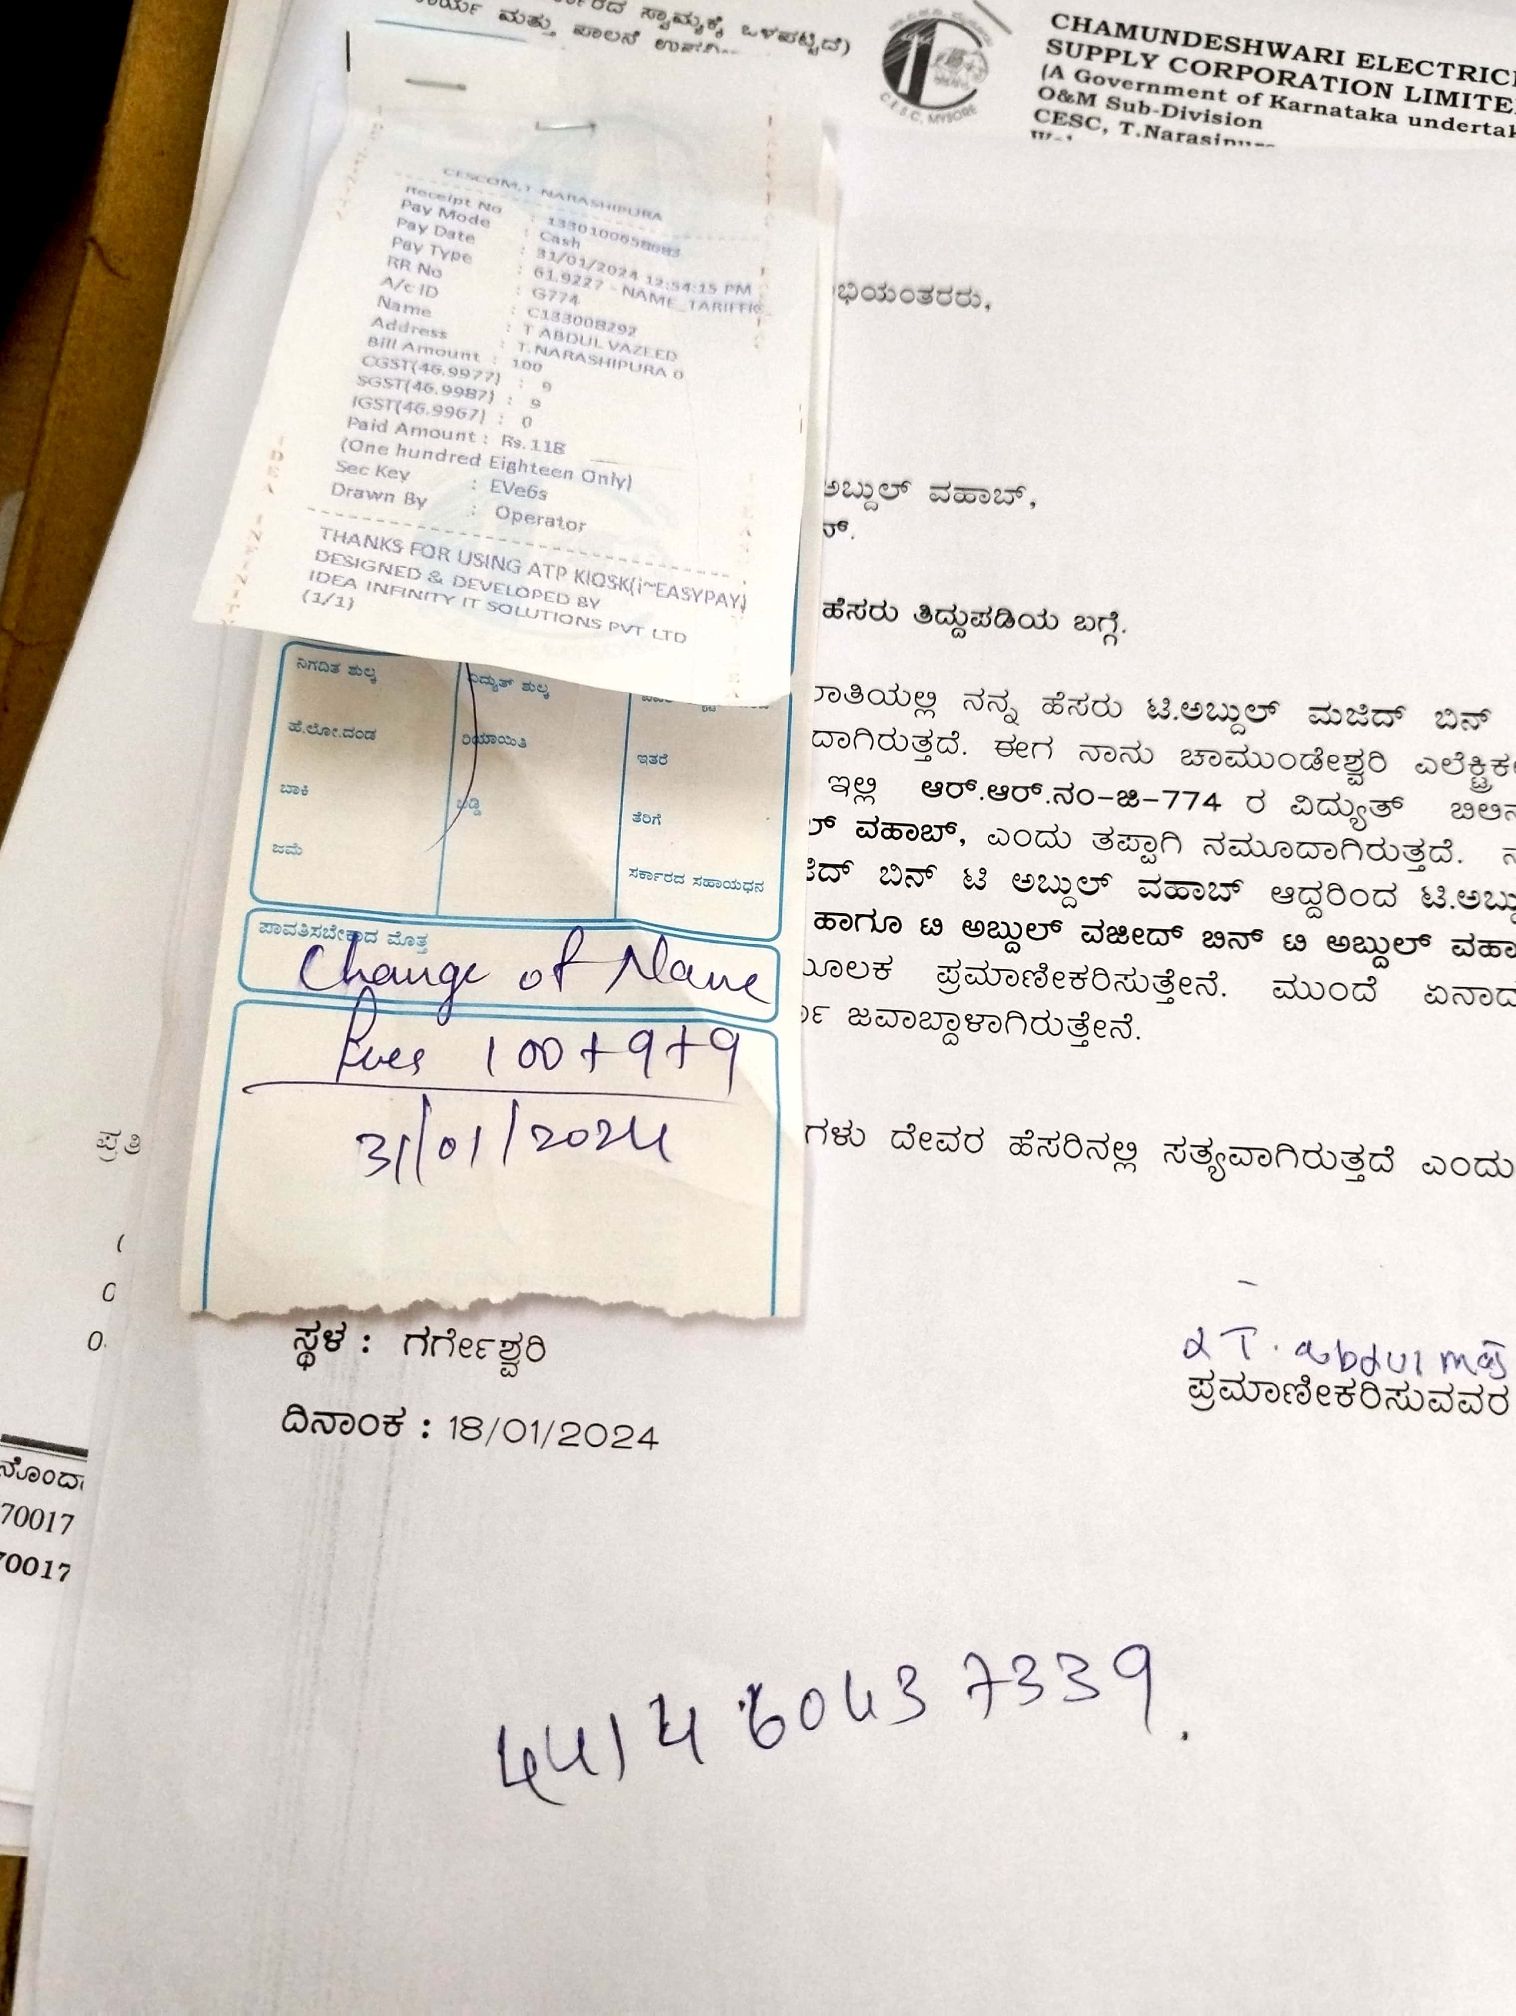 ಸ್ವಾಮ್ಯಕ್ಕೆ ಒಳಪಟ್ಟಿದೆ)
ಕಾರ್ಯ ಮತ್ತು ಪಾಲನೆ
CHAMUNDESHWARI ELECTRICI
SUPPLY CORPORATION LIMITE
(A Government of Karnataka undertak
O&M Sub-Division
CESC, T.Narasipu
C.E.S.C, MYSORE
CESCOM,T NARASHIPURA
Receipt No : 1330100658683
Pay Mode : Cash
Pay Date : 31/01/2024 12:54:15 PM
Pay Type : 61.9227 - NAME_TARIFFIC
RR No : G774
A/c ID : C133008292
Name : T ABDUL VAZEED
Address : T.NARASHIPURA 0
Bill Amount : 100
CGST(46.9977) : 9
SGST(46.9987) : 9
IGST(46.9967) : 0
Paid Amount : Rs.118
(One hundred Eighteen Only)
Sec Key : EVe6s
Drawn By : Operator
THANKS FOR USING ATP KIOSK(i~EASYPAY)
DESIGNED & DEVELOPED BY
IDEA INFINITY IT SOLUTIONS PVT LTD
(1/1)
ನಿಗದಿತ ಶುಲ್ಕ ವಿದ್ಯುತ್ ಶುಲ್ಕ
ಹೆ.ಲೋ.ದಂಡ ರಿಯಾಯಿತಿ ಇತರೆ
ಬಾಕಿ ಬಡ್ಡಿ ತೆರಿಗೆ
ಜಮೆ ಸರ್ಕಾರದ ಸಹಾಯಧನ
ಪಾವತಿಸಬೇಕಾದ ಮೊತ್ತ
Change of Name
fees 100+9+9
31/01/2024
ಭಿಯಂತರರು,
ಅಬ್ದುಲ್ ವಹಾಬ್,
ನ್.
ಹೆಸರು ತಿದ್ದುಪಡಿಯ ಬಗ್ಗೆ.
ರಾತಿಯಲ್ಲಿ ನನ್ನ ಹೆಸರು ಟಿ.ಅಬ್ದುಲ್ ಮಜಿದ್ ಬಿನ್
ದಾಗಿರುತ್ತದೆ. ಈಗ ನಾನು ಚಾಮುಂಡೇಶ್ವರಿ ಎಲೆಕ್ಟ್ರಿಕ
ಇಲ್ಲಿ ಆರ್.ಆರ್.ನಂ-ಜಿ-774 ರ ವಿದ್ಯುತ್ ಬಿಲಿನ
ಲ್ ವಹಾಬ್, ಎಂದು ತಪ್ಪಾಗಿ ನಮೂದಾಗಿರುತ್ತದೆ. ನ
ಜಿದ್ ಬಿನ್ ಟಿ ಅಬ್ದುಲ್ ವಹಾಬ್ ಆದ್ದರಿಂದ ಟಿ.ಅಬ್ದು
ಹಾಗೂ ಟಿ ಅಬ್ದುಲ್ ವಜೀದ್ ಬಿನ್ ಟಿ ಅಬ್ದುಲ್ ವಹಾ
ಮೂಲಕ ಪ್ರಮಾಣೀಕರಿಸುತ್ತೇನೆ. ಮುಂದೆ ಏನಾದ
ರ್ಣ ಜವಾಬ್ದಾಳಾಗಿರುತ್ತೇನೆ.
ಗಳು ದೇವರ ಹೆಸರಿನಲ್ಲಿ ಸತ್ಯವಾಗಿರುತ್ತದೆ ಎಂದು
ಪ್ರತಿ
ಸ್ಥಳ : ಗರ್ಗೇಶ್ವರಿ
T. abdul maj
ಪ್ರಮಾಣೀಕರಿಸುವವರ
ದಿನಾಂಕ : 18/01/2024
ನೊಂದಾ
70017
70017
441480437339.